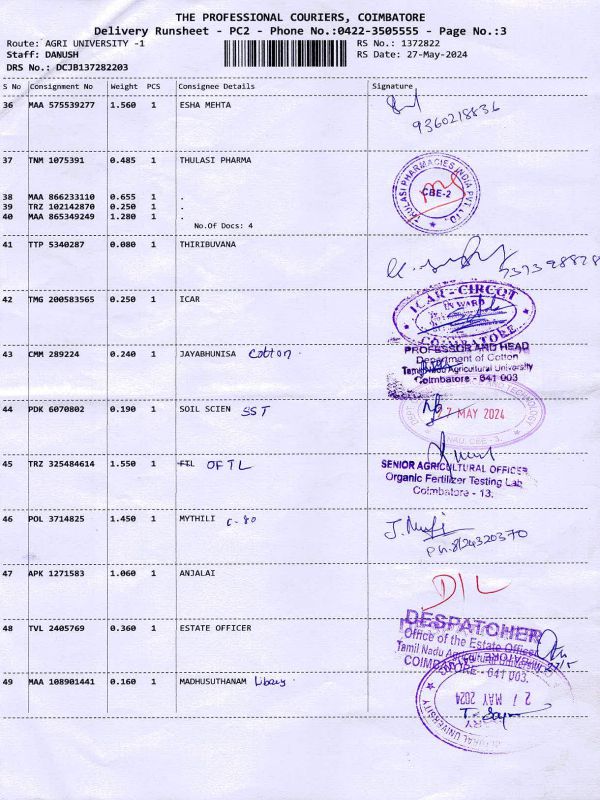 THE PROFESSIONAL COURIERS, COIMBATORE
Delivery Runsheet - PC2 - Phone No.:0422-3505555 - Page No.:3
Route: AGRI UNIVERSITY -1
RS No.: 1372822
Staff: DANUSH
RS Date: 27-May-2024
DRS No.: DCJB137282203
S No Consignment No Weight PCS Consignee Details Signature
36 MAA 575539277 1.560 1 ESHA MEHTA
9360218836
37 TNM 1075391 0.485 1 THULASI PHARMA
THULASI PHARMACIES INDIA PVT. LTD.
CBE-2
38 MAA 866233110 0.655 1 .
39 TRZ 102142870 0.250 1 .
40 MAA 865349249 1.280 1 .
No.Of Docs: 4
41 TTP 5340287 0.080 1 THIRIBUVANA
42 TMG 200583565 0.250 1 ICAR
ICAR-CIRCOT
INWARD
COIMBATORE
43 CMM 289224 0.240 1 JAYABHUNISA Cotton
PROFESSOR AND HEAD
Department of Cotton
Tamil Nadu Agricultural University
Coimbatore - 641 003
44 PDK 6070802 0.190 1 SOIL SCIEN SST
27 MAY 2024
TNAU, CBE - 3.
45 TRZ 325484614 1.550 1 FTL OFTL
SENIOR AGRICULTURAL OFFICER
Organic Fertilizer Testing Lab
Coimbatore - 13.
46 POL 3714825 1.450 1 MYTHILI C-80
Ph:8124320370
47 APK 1271583 1.060 1 ANJALAI
D/L
48 TVL 2405769 0.360 1 ESTATE OFFICER
DESPATCHER
Office of the Estate Officer
Tamil Nadu Agricultural University
COIMBATORE - 641 003.
27/5
49 MAA 108901441 0.160 1 MADHUSUTHANAM Library
27 MAY 2024